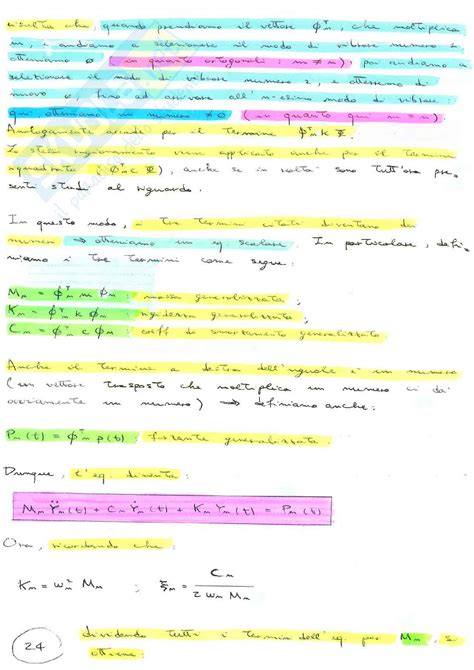 risulta che, quando prendiamo il vettore ϕₙᵀ, che moltiplica
m, e andiamo a selezionare il modo di vibrare numero 1
otteniamo ∅ (in quanto ortogonali: m ≠ n); poi andiamo a
selezionare il modo di vibrare numero 2, e otterremo di
nuovo ∅ fino ad arrivare all'n-esimo modo di vibrare:
qui otteniamo un numero ≠ 0 (in quanto qui m = n).
Analogamente accade per il termine ϕₙᵀ k Φ.
Lo stesso ragionamento viene applicato anche per il termine
riguardante (ϕₙᵀ c Φ), anche se in realtà sono tutt'ora pre
senti studi al riguardo.
In questo modo, i tre termini citati diventano dei
numeri ⇒ otteniamo un eq. scalare. In particolare, defi-
niamo i tre termini come segue:
Mₙ = ϕₙᵀ m ϕₙ : massa generalizzata;
Kₙ = ϕₙᵀ k ϕₙ : rigidezza generalizzata;
Cₙ = ϕₙᵀ c ϕₙ : coeff di smorzamento generalizzato.
Anche il termine a destra dell'uguale è un numero
(un vettore trasposto che moltiplica un numero ci dà
ovviamente un numero) ⇒ definiamo anche:
Pₙ(t) = ϕₙᵀ p(t) : forzante generalizzata.
Dunque, l'eq. diventa:
Mₙ Ÿₙ(t) + Cₙ Ẏₙ(t) + Kₙ Yₙ(t) = Pₙ(t)
Ora, ricordando che:
Kₙ = ωₙ² Mₙ ; ξₙ = Cₙ / 2 ωₙ Mₙ
dividendo tutti i termini dell'eq. per Mₙ, si
24 ottiene: